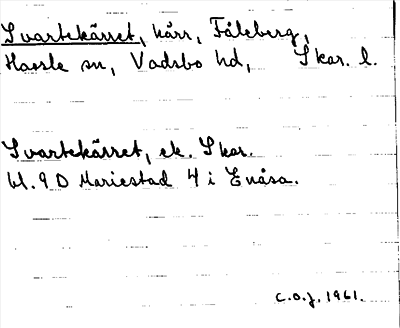 Svartekärret, kärr, Fåleberg,
Hassle sn, Vadsbo hd, Skar. l.
Svartekärret, ek. Skar.
bl. 9 D Mariestad 4 i Enåsa.
C.O.J. 1961.